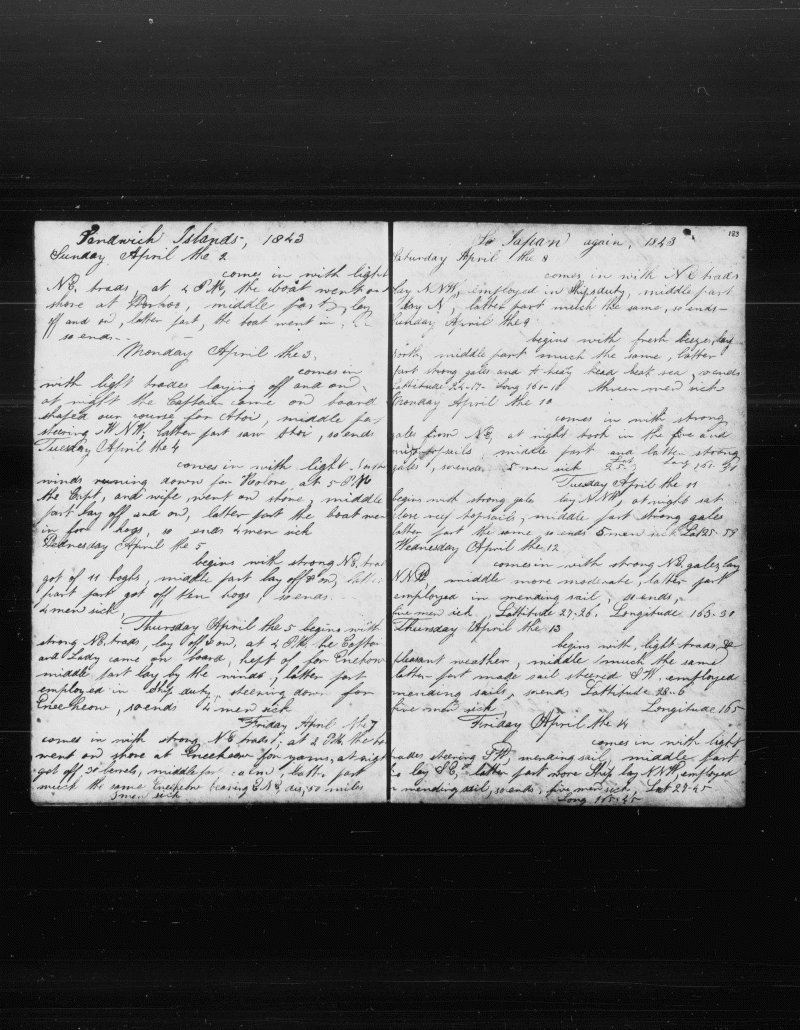 Sandwich Islands, 1843
Sunday April the 2
come in with light
NE, trads, at 4 PM, the boat went on
shore at middle part lay
off and on, latter part, the boat went in
so ends
Monday April the 3
comes in
with light trades laying off and on,
at night the Captain came on board
shaped our course for Atoi, middle part
steering W N W, latter part saw Atoi, so ends
Tuesday April the 4
comes in with light
winds running down for at 5 PM
the Capt, and wife went on shore, middle
part lay off and on, latter part the boat went
in for hogs, so ends 4 men sick
Wednesday April the 5
begins with strong NE, trads
got of 11 hoghs, middle part lay off & on,
part part got off ten hogs, so ends
4 men sick
Thursday April the 5 begins with
strong NE, trads, lay off & on, at 4 PM, the Captain
and Lady came on board, kept of for Enehow
middle part lay by the winds, latter part
employed in Ship duty, steering down for
Oneeheow, so ends 4 men sick
Friday April the 7
comes in with strong NE trads, at 2 PM, the boat
went on shore at Oneeheow for yams, at night
got off, 30 berels, middle for calm, latter part
much the same Oneehow bearing ENE, dis, 50 miles
3 men sick
183
To Japan again, 1843
Saturday April the 8
comes in with NE trads
lay N N W, employed in Ships duty, middle part
lay N, latter part much the same, so ends
Sunday April the 9
begins with fresh breeze, lay
North, middle part much the same, latter
part strong gales and heavy head beat sea, so ends
Lattitude 24-17- Long 161-10 three men sick
Monday April the 10
comes in with strong
gales from NE, at night took in the fore and
topsails middle part and latter strong
gales, so ends, 5 men sick Lat 25 Long 161-30
Tuesday April the 11
begins with strong gale lay N N W, at night sat
close reef topsails, middle part strong gales
latter part the same so ends 5 men sick Lat 25-59
Wednesday April the 12
comes in with strong NE, gales, lay
N N W, middle more moderate, latter part
employed in mending sail, so ends,
five men sick, Lattitude 27-26, Longitude 163-30
Thursday April the 13
begins with light trads, &
pleasant weather, middle much the same
latter part made sail steered S W, employed
mending sails, so ends Lattitude 28-6
five men sick Longitude 165
Friday April the 14
comes in with light
trades steering S W, mending sail, middle part
to lay S E, latter part wore Ship lay N N W, employed
in mending sail, so ends, five men sick, Lat 27-45
Long 165-45